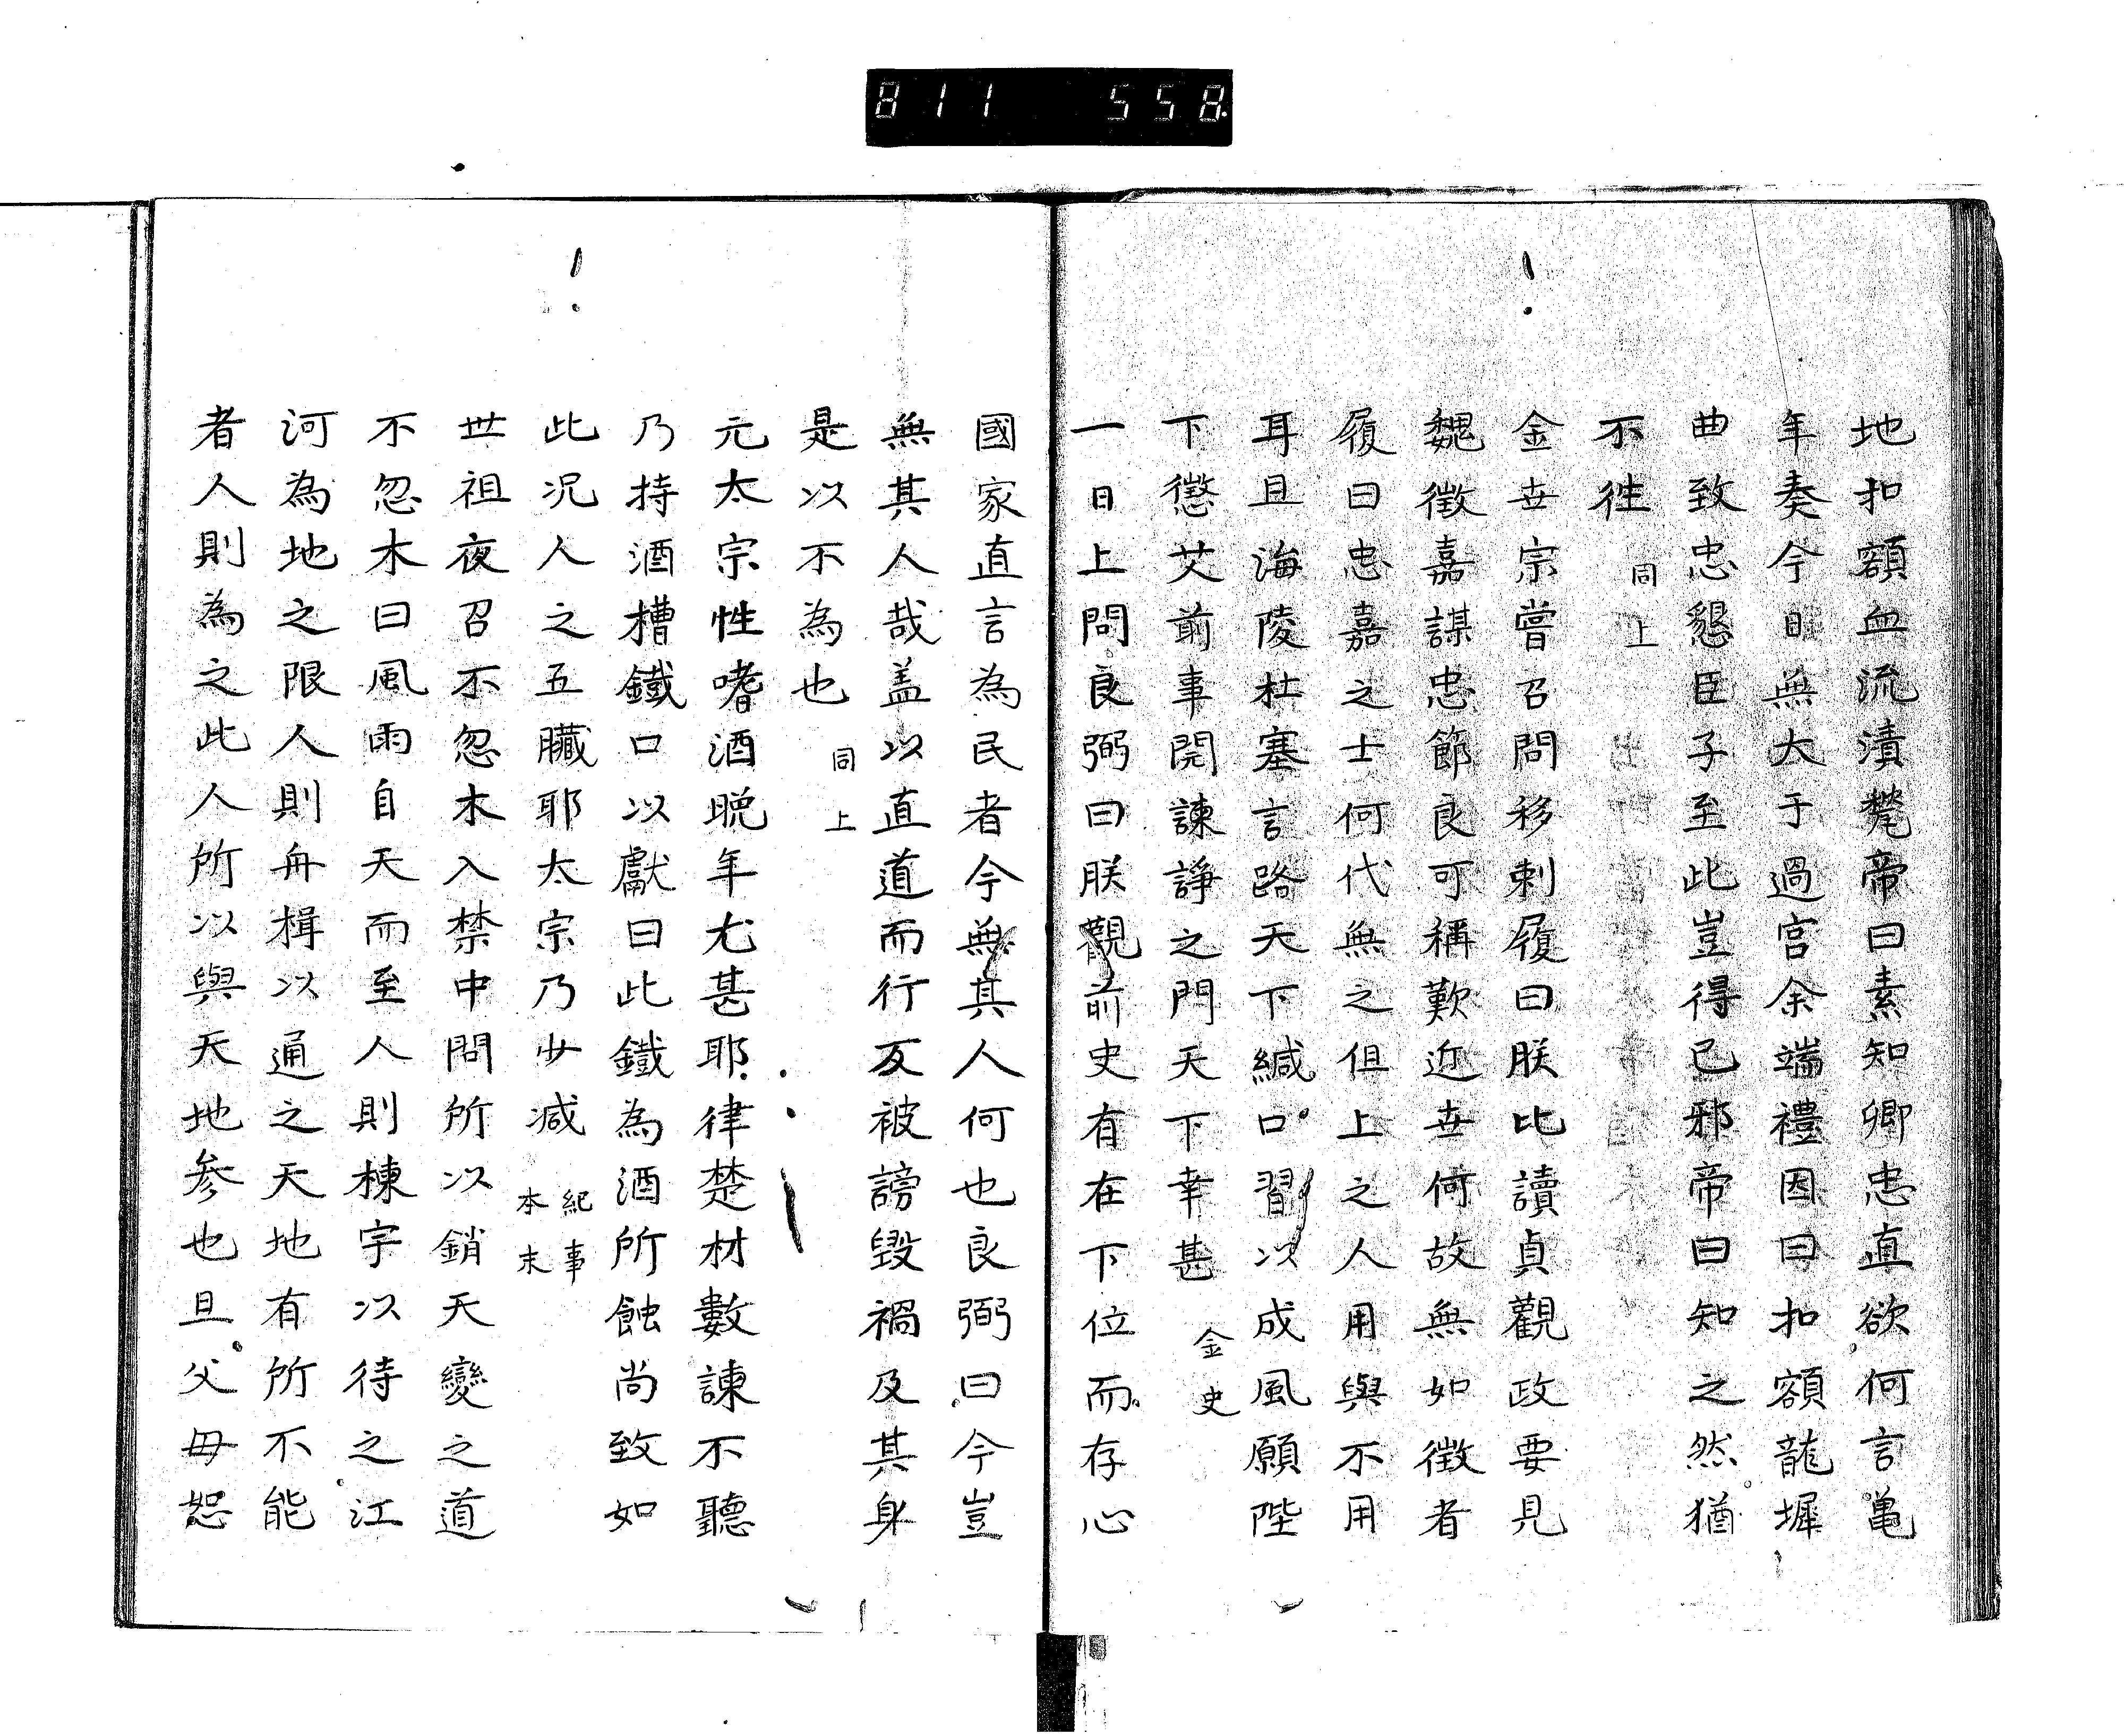 811 558
地扣額血流漬甃帝曰素知卿忠直欲何言龜
年奏今日無大于過宮余端禮因曰扣額龍墀
曲致忠懇臣子至此豈得已邪帝曰知之然猶
不徃 同上
金世宗嘗召問移剌履曰朕比讀貞觀政要見
魏徴嘉謀忠節良可稱歎近世何故無如徴者
履曰忠嘉之士何代無之但上之人用與不用
耳且海陵杜塞言路天下緘口習以成風願陛
下懲艾前事開諫諍之門天下幸甚 金史
一日上問良弼曰朕觀前史有在下位而存心
國家直言為民者今無其人何也良弼曰今豈
無其人哉盖以直道而行反被謗毀禍及其身
是以不為也 同上
元太宗性嗜酒晚年尤甚耶律楚材數諫不聽
乃持酒槽鐵口以獻曰此鐵為酒所蝕尚致如
此况人之五臓耶太宗乃少减 紀事本末
世祖夜召不忽木入禁中問所以銷天變之道
不忽木曰風雨自天而至人則棟宇以待之江
河為地之限人則舟楫以通之天地有所不能
者人則為之此人所以與天地参也且父母怒